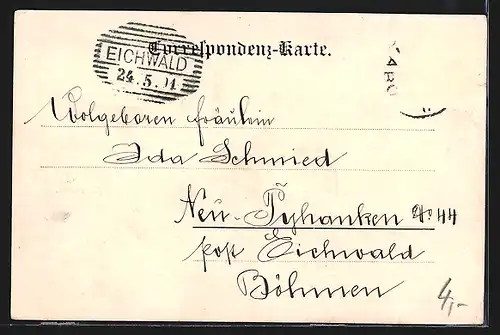 Correspondenz-Karte.
EICHWALD
24.5.01
Wolgebaren fräulein
Ida Schmied
Neu-Tyhanken No 44
post Eichwald
Böhmen
4,-